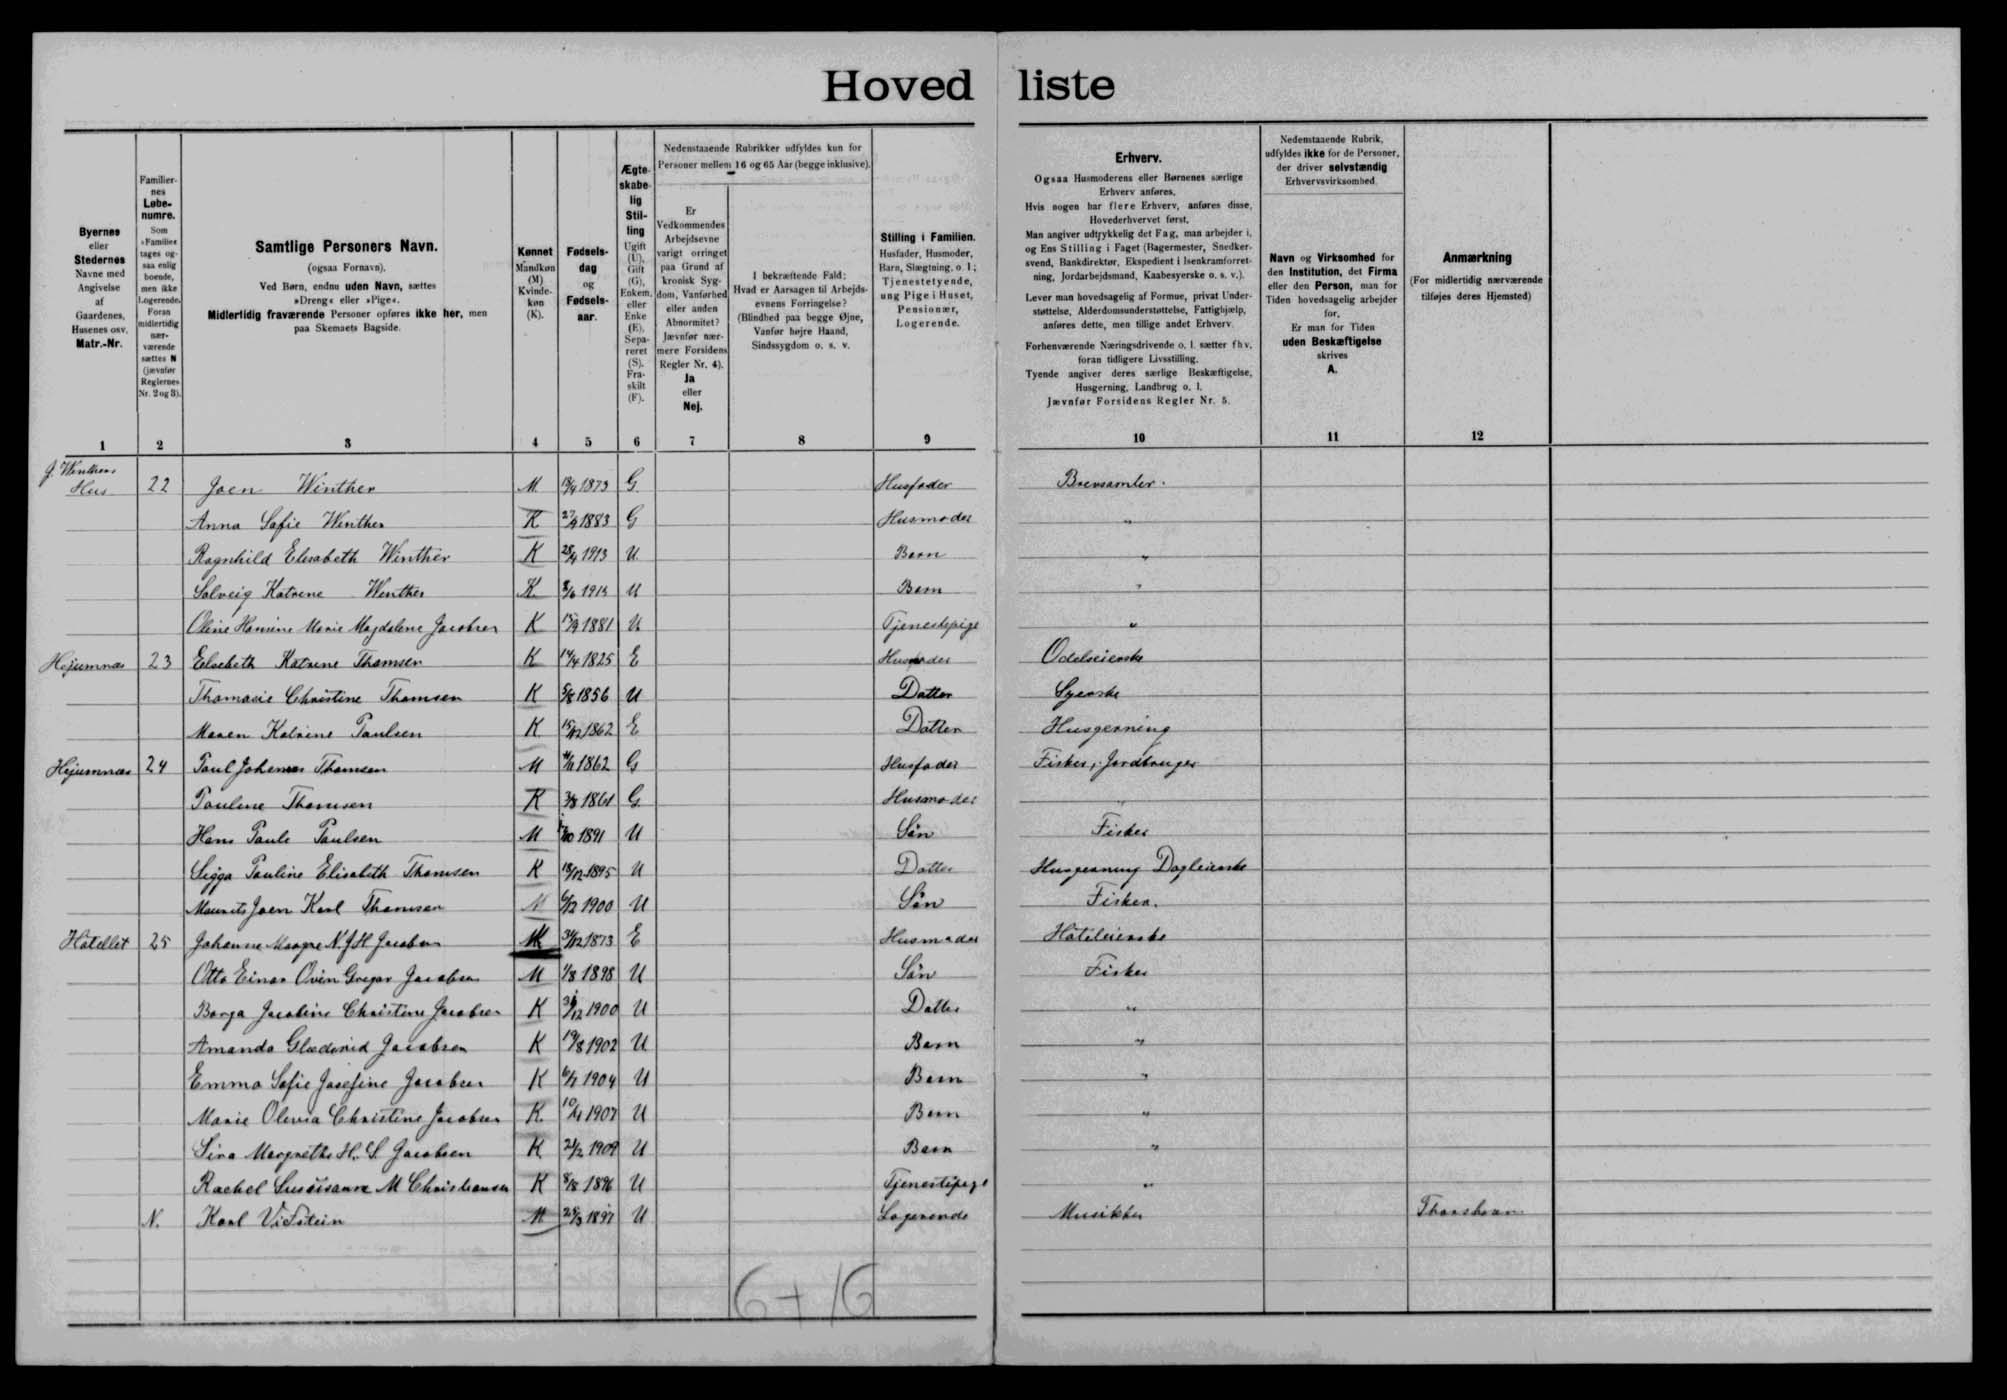 Hoved liste
Byernes
eller
Stedernes
Navne med
Angivelse
af
Gaardenes,
Husenes osv.
Matr.-Nr.
Familier-
nes
Løbe-
numre.
Som
»Familie«
tages og-
saa enlig
boende,
men ikke
Logerende.
Foran
midlertidig
nær-
værende
sættes N
(jævnfør
Reglernes
Nr. 2 og 3).
Samtlige Personers Navn.
(ogsaa Fornavn).
Ved Børn, endnu uden Navn, sættes
»Dreng« eller »Pige«.
Midlertidig fraværende Personer opføres ikke her, men
paa Skemaets Bagside.
Kønnet
Mandkøn
(M)
Kvinde-
køn
(K).
Fødsels-
dag
og
Fødsels-
aar.
Ægte-
skabe-
lig
Stil-
ling
Ugift
(U),
Gift
(G),
Enkem.
eller
Enke
(E),
Sepa-
reret
(S),
Fra-
skilt
(F).
Nedenstaaende Rubrikker udfyldes kun for
Personer mellem 16 og 65 Aar (begge inklusive).
Er
Vedkommendes
Arbejdsevne
varigt forringet
paa Grund af
kronisk Syg-
dom, Vanførhed
eller anden
Abnormitet?
Jævnfør nær-
mere Forsidens
Regler Nr. 4).
Ja
eller
Nej.
I bekræftende Fald:
Hvad er Aarsagen til Arbejds-
evnens Forringelse?
(Blindhed paa begge Øjne,
Vanfør højre Haand,
Sindssygdom o. s. v.
Stilling i Familien.
Husfader, Husmoder,
Barn, Slægtning, o. l.;
Tjenestetyende,
ung Pige i Huset,
Pensionær,
Logerende.
Erhverv.
Ogsaa Husmoderens eller Børnenes særlige
Erhverv anføres.
Hvis nogen har flere Erhverv, anføres disse,
Hovederhvervet først.
Man angiver udtrykkelig det Fag, man arbejder i,
og Ens Stilling i Faget (Bagermester, Snedker-
svend, Bankdirektør, Ekspedient i Isenkramforret-
ning, Jordarbejdsmand, Kaabesyerske o. s. v.).
Lever man hovedsagelig af Formue, privat Under-
støttelse, Alderdomsunderstøttelse, Fattighjælp,
anføres dette, men tillige andet Erhverv.
Forhenværende Næringsdrivende o. l. sætter fhv.
foran tidligere Livsstilling.
Tyende angiver deres særlige Beskæftigelse,
Husgerning, Landbrug o. l.
Jævnfør Forsidens Regler Nr. 5.
Nedenstaaende Rubrik,
udfyldes ikke for de Personer,
der driver selvstændig
Erhvervsvirksomhed.
Navn og Virksomhed for
den Institution, det Firma
eller den Person, man for
Tiden hovedsagelig arbejder
for.
Er man for Tiden
uden Beskæftigelse
skrives
A.
Anmærkning
(For midlertidig nærværende
tilføjes deres Hjemsted)
1 2 3 4 5 6 7 8 9 10 11 12
J. Winthers
Hus 22 Joen Winther M 1873 G Husfader Brevsamler
Anna Sofie Winther K 27/9 1883 G Husmoder "
Ragnhild Elisabeth Winther K 1913 U Barn "
Solveig Katrene Winther K U Barn "
Oline Hansine Marie Magdalene Jacobsen K 1881 U Tjenestepige "
Hejumnæs 23 Elsebeth Katrene Thomsen K 14/4 1825 E Odelseierske
Thomasie Christine Thomsen K 5/8 1856 U Datter Syerske
Maren Katrine Paulsen K 15/12 1862 E Datter Husgerning
Hejumnæs 24 Poul Johannes Thomsen M 1862 G Husfader Fisker, Jordbruger
Pauline Thomsen K 3/8 1861 G Husmoder "
Hans Pauli Paulsen M 1891 U Søn Fisker
Sigga Pauline Elisabeth Thomsen K 18/12 1895 U Datter Husgerning Dagleierske
Maurits Joen Karl Thomsen M 6/12 1900 U Søn Fisker.
Hotellet 25 Johanne Margre N. J H Jacobsen K 31/12 1873 E Husmoder Hoteleierske
Otto Einar Oven Gregor Jacobsen M 1/8 1898 U Søn Fisker
Borga Jacobine Christine Jacobsen K 1900 U Datter "
Amanda Glæderid Jacobsen K 19/8 1902 U Barn "
Emma Sofie Josefine Jacobsen K 1904 U Barn "
Marie Olevia Christine Jacobsen K 1907 U Barn "
Sina Margrethe H. S. Jacobsen K 21/2 1909 U Barn "
Rachel M Christiansen K 8/8 1896 U Tjenestepige "
N. Karl M 1897 U Logerende Musikker Thorshavn
6 + 16